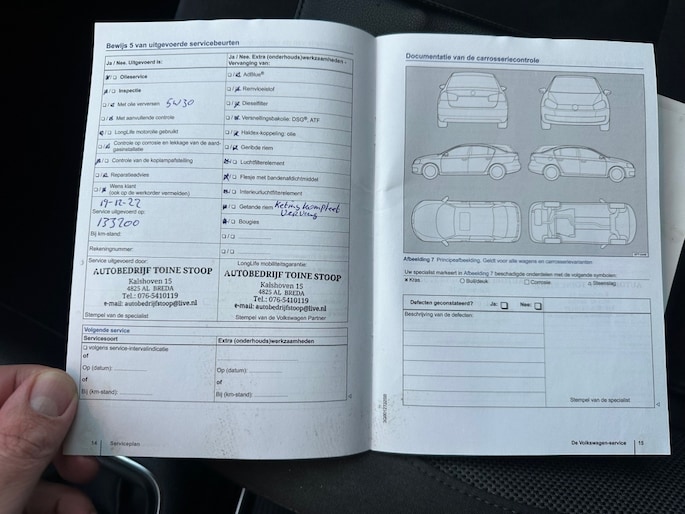 Bewijs 5 van uitgevoerde servicebeurten
Ja / Nee. Uitgevoerd is:
☐/☐ Olieservice
☐/☐ Inspectie
☐/☐ Met olie verversen 5W30
☐/☐ Met aanvullende controle
☐/☐ LongLife motorolie gebruikt
☐/☐ Controle op corrosie en lekkage van de aard-
gasinstallatie
☐/☐ Controle van de koplampafstelling
☐/☐ Reparatieadvies
☐/☐ Wens klant
(ook op de werkorder vermelden)
19-12-22
Service uitgevoerd op:
133200
Bij km-stand:
Rekeningnummer:
Service uitgevoerd door:
AUTOBEDRIJF TOINE STOOP
Kalshoven 15
4825 AL BREDA
Tel.: 076-5410119
e-mail: autobedrijfstoop@live.nl
Stempel van de specialist
Ja / Nee. Extra (onderhouds)werkzaamheden -
Vervanging van:
☐/☐ AdBlue®
☐/☐ Remvloeistof
☐/☐ Dieselfilter
☐/☐ Versnellingsbakolie: DSG®, ATF
☐/☐ Haldex-koppeling: olie
☐/☐ Geribde riem
☐/☐ Luchtfilterelement
☐/☐ Flesje met bandenafdichtmiddel
☐/☐ Interieurluchtfilterelement
☐/☐ Getande riem Keting kompleet
☐/☐ Bougies
☐/☐
☐/☐
LongLife mobiliteitsgarantie:
AUTOBEDRIJF TOINE STOOP
Kalshoven 15
4825 AL BREDA
Tel.: 076-5410119
e-mail: autobedrijfstoop@live.nl
Stempel van de Volkswagen Partner
Volgende service
Servicesoort
☐ volgens service-intervalindicatie
of
Op (datum):
of
Bij (km-stand):
Extra (onderhouds)werkzaamheden
Op (datum):
of
Bij (km-stand):
14 Serviceplan
Documentatie van de carrosseriecontrole
Afbeelding 7 Principeafbeelding. Geldt voor alle wagens en carrosserievarianten
Uw specialist markeert in Afbeelding 7 beschadigde onderdelen met de volgende symbolen:
× Kras ○ Buil/deuk □ Corrosie △ Steenslag
Defecten geconstateerd? Ja: ☐ Nee: ☐
Beschrijving van de defecten:
Stempel van de specialist
De Volkswagen-service 15